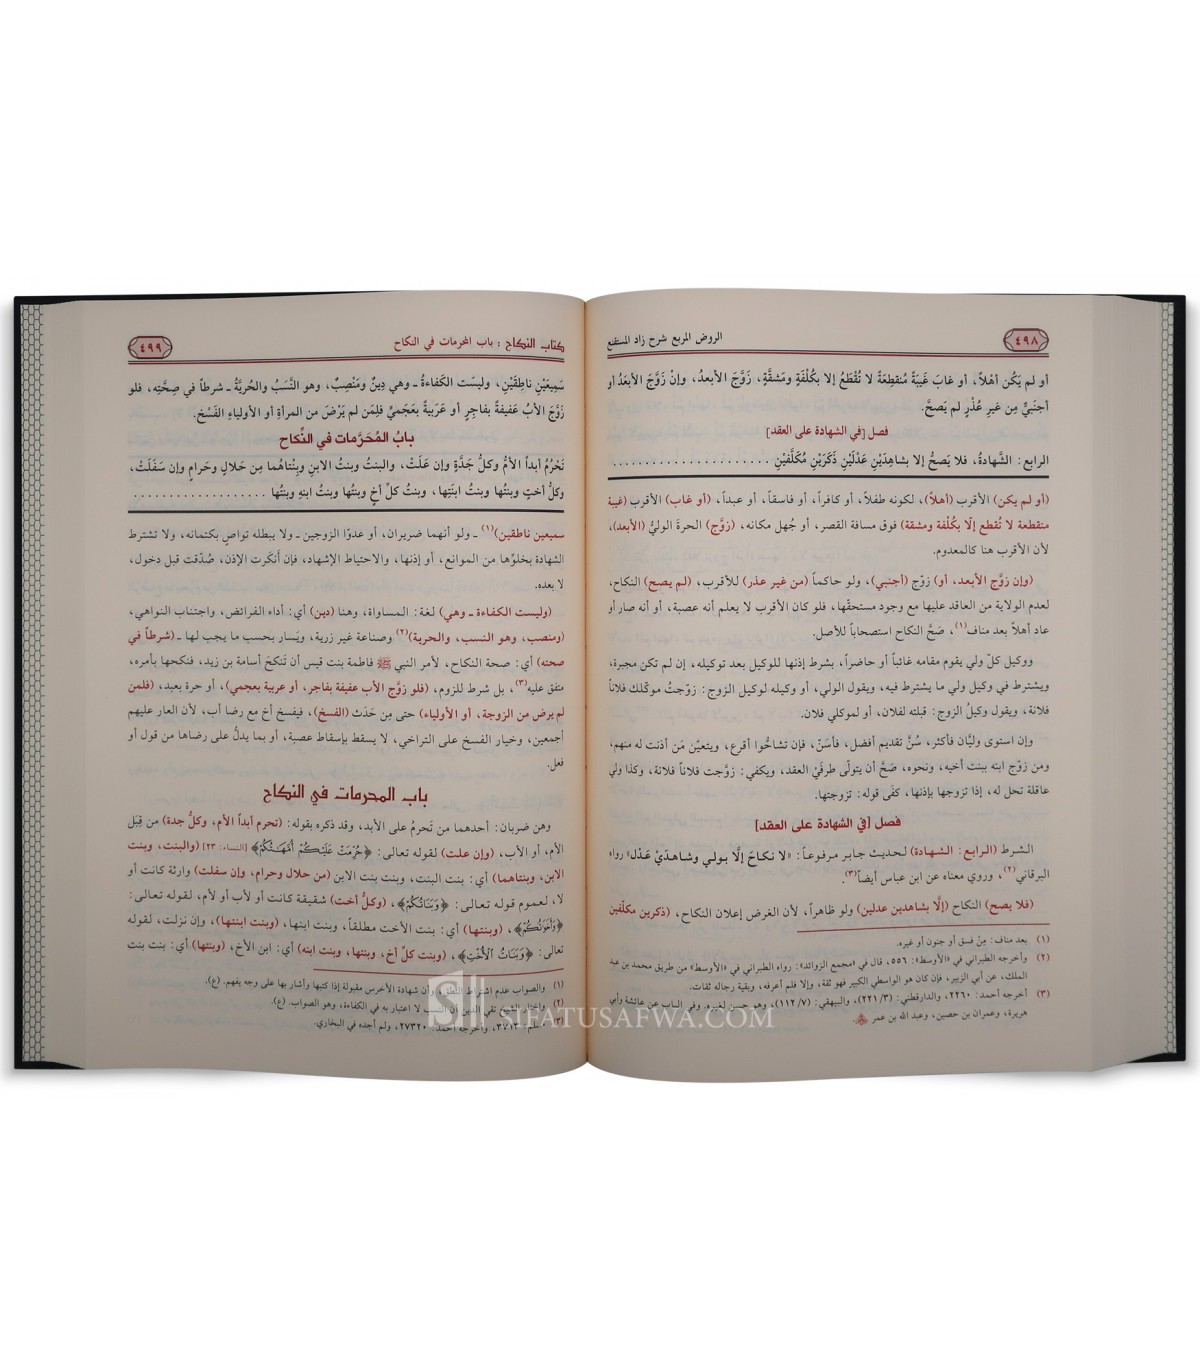 ٤٩٨
الروض المربع شرح زاد المستقنع
أو لم يَكُن أهْلاً، أو غابَ غَيْبَةً مُنقطِعَةً لا تُقْطَعُ إلا بكُلْفَةٍ ومَشقَّةٍ، زَوَّجَ الأبعدُ، وإنْ زَوَّجَ الأبعدُ أو
أجنَبيٌّ مِن غيرِ عُذْرٍ لم يَصحَّ.
فصل [في الشهادة على العقد]
الرابع: الشَّهادةُ، فلا يَصحُّ إلا بشاهِدَيْنِ عَدْلَيْنِ ذَكَرَيْنِ مُكَلَّفَيْنِ
(أو لم يكن) الأقرب (أهلاً)، لكونه طفلاً، أو كافراً، أو فاسقاً، أو عبداً، (أو غاب) الأقرب (غيبة
منقطعة لا تُقطع إلّا بكُلْفة ومشقة) فوق مسافة القصر، أو جُهل مكانه، (زوَّج) الحرةَ الوليُّ (الأبعد)،
لأن الأقرب هنا كالمعدوم.
(وإن زوَّج الأبعد، أو) زوّج (أجنبي)، ولو حاكماً (من غير عذر) للأقرب، (لم يصح) النكاح،
لعدم الولاية من العاقد عليها مع وجود مستحقّها، فلو كان الأقرب لا يعلم أنه عصبة، أو أنه صار أو
عاد أهلاً بعد مناف(١)، صَحَّ النكاح استصحاباً للأصل.
ووكيل كلّ ولي يقوم مقامه غائباً أو حاضراً، بشرط إذنها للوكيل بعد توكيله، إن لم تكن مجبرة،
ويشترط في وكيل ولي ما يشترط فيه، ويقول الولي، أو وكيله لوكيل الزوج: زوّجتُ موكّلك فلاناً
فلانة، ويقول وكيلُ الزوج: قبلته لفلان، أو لموكلي فلان.
وإن استوى وليَّان فأكثر، سُنَّ تقديم أفضل، فأسَنّ، فإن تشاحُّوا أقرع، ويتعيّن مَن أذنت له منهم،
ومن زوّج ابنه ببنت أخيه، ونحوه، صَحَّ أن يتولّى طرفَيْ العقد، ويكفي: زوَّجت فلاناً فلانة، وكذا ولي
عاقلة تحل له، إذا تزوجها بإذنها، كفى قوله: تزوجتها.
فصل [في الشهادة على العقد]
الشرط (الرابع: الشهادة) لحديث جابر مرفوعاً: «لا نكاحَ إلَّا بولي وشاهدَيْ عَدْل» رواه
البرقاني(٢)، وروي معناه عن ابن عباس أيضاً(٣).
(فلا يصح) النكاح (إلَّا بشاهدين عدلين) ولو ظاهراً، لأن الغرض إعلان النكاح، (ذكرين مكلّفين
(١) بعد مناف: مِنْ فسق أو جنون أو غيره.
(٢) وأخرجه الطبراني في «الأوسط»: ٥٥٦، قال في «مجمع الزوائد»: رواه الطبراني في «الأوسط» من طريق محمد بن عبد
الملك، عن أبي الزبير، فإن كان هو الواسطي الكبير فهو ثقة، وإلا فلم أعرفه، وبقية رجاله ثقات.
(٣) أخرجه أحمد: ٢٢٦٠، والدارقطني: (٢٢١/٣)، والبيهقي: (١١٢/٧)، وهو حسن لغيره. وفي الباب عن عائشة وأبي
هريرة، وعمران بن حصين، وعبد الله بن عمر
كتاب النكاح : باب المحرمات في النكاح
٤٩٩
سَمِيعَيْنِ ناطِقَيْنِ، وليسَت الكَفاءةُ ـ وهي دِينٌ ومَنْصِبٌ، وهو النَّسَبُ والحُريَّةُ ـ شرطاً في صِحَّتِه، فلو
زَوَّجَ الأبُ عَفيفةً بفاجِرٍ أو عَرَبيَةً بعَجَميٍّ فلِمَن لم يَرْضَ من المرأةِ أو الأولياءِ الفَسْخُ.
بابُ المُحَرَّمات في النِّكاح
تَحْرُمُ أبداً الأمُّ وكلُّ جَدَّةٍ وإن عَلَتْ، والبنتُ وبنتُ الابنِ وبِنْتاهُما مِن حَلالٍ وحَرامٍ وإن سَفَلَتْ،
وكلُّ أختٍ وبنتُها وبنتُ ابنَتِها، وبنتُ كلِّ أخٍ وبنتُها وبنتُ ابنِهِ وبنتُها
سميعين ناطقين)(١) ـ ولو أنهما ضريران، أو عدوّا الزوجين ـ ولا يبطله تواصٍ بكتمانه، ولا تشترط
الشهادة بخلوِّها من الموانع، أو إذنها، والاحتياط الإشهاد، فإن أَنكَرت الإذن، صُدّقت قبل دخول،
لا بعده.
(وليست الكفاءة ـ وهي) لغة: المساواة، وهنا (دين) أي: أداء الفرائض، واجتناب النواهي،
(ومنصب، وهو النسب، والحرية)(٢) وصناعة غير زرية، ويَسار بحسب ما يجب لها ـ (شرطاً في
صحته) أي: صحة النكاح، لأمر النبي ﷺ فاطمة بنت قيس أن تَنكحَ أسامة بن زيد، فنكحها بأمره،
متفق عليه(٣)، بل شرط للزوم، (فلو زوَّج الأب عفيفة بفاجر، أو عربية بعجمي)، أو حرة بعبد، (فلمن
لم يرض من الزوجة، أو الأولياء) حتى مِن حَدَث (الفسخ)، فيفسخ أخ مع رضا أب، لأن العار عليهم
أجمعين، وخيار الفسخ على التراخي، لا يسقط بإسقاط عصبة، أو بما يدلُّ على رضاها من قول أو
فعل.
باب المحرمات في النكاح
وهن ضربان: أحدهما من تَحرمُ على الأبد، وقد ذكره بقوله: (تحرم أبداً الأم، وكلُّ جدة) من قِبَل
الأم، أو الأب، (وإن علت) لقوله تعالى: ﴿حُرِّمَتْ عَلَيْكُمْ أُمَّهَٰتُكُمْ﴾ [النساء: ٢٣] (والبنت، وبنت
الابن، وبنتاهما) أي: بنت البنت، وبنت بنت الابن (من حلال وحرام، وإن سفلت) وارثة كانت أو
لا، لعموم قوله تعالى: ﴿وَبَنَاتُكُمْ﴾، (وكلُّ أخت) شقيقة كانت أو لأب أو لأم، لقوله تعالى:
﴿وَأَخَوَٰتُكُمْ﴾، (وبنتها) أي: بنت الأخت مطلقاً، وبنت ابنها، (وبنت ابنتها)، وإن نزلت، لقوله
تعالى: ﴿وَبَنَاتُ ٱلْأُخْتِ﴾، (وبنت كلِّ أخ، وبنتها، وبنت ابنه) أي: ابن الأخ، (وبنتها) أي: بنت بنت
(١) والصواب عدم اشتراط النطق، وأن شهادة الأخرس مقبولة إذا كتبها وأشار بها على وجه يفهم. (ع).
(٢) واختار الشيخ تقي الدين أن النسب لا اعتبار به في الكفاءة، وهو الصواب. (ع).
(٣) مسلم: ٣٧١٢، وأخرجه أحمد: ٢٧٣٢٠، ولم أجده في البخاري.
SIFATUSAFWA.COM